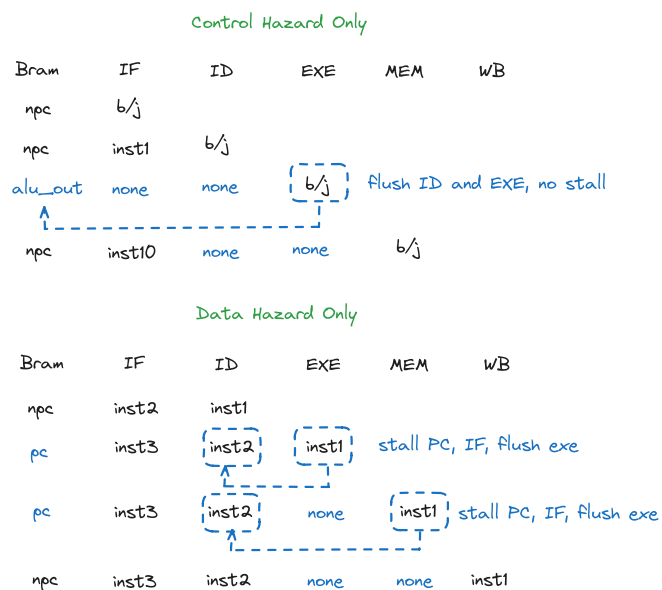 Control Hazard Only
Bram IF ID EXE MEM WB
npc b/j
npc inst1 b/j
alu_out none none b/j flush ID and EXE, no stall
npc inst10 none none b/j
Data Hazard Only
Bram IF ID EXE MEM WB
npc inst2 inst1
pc inst3 inst2 inst1 stall PC, IF, flush exe
pc inst3 inst2 none inst1 stall PC, IF, flush exe
npc inst3 inst2 none none inst1